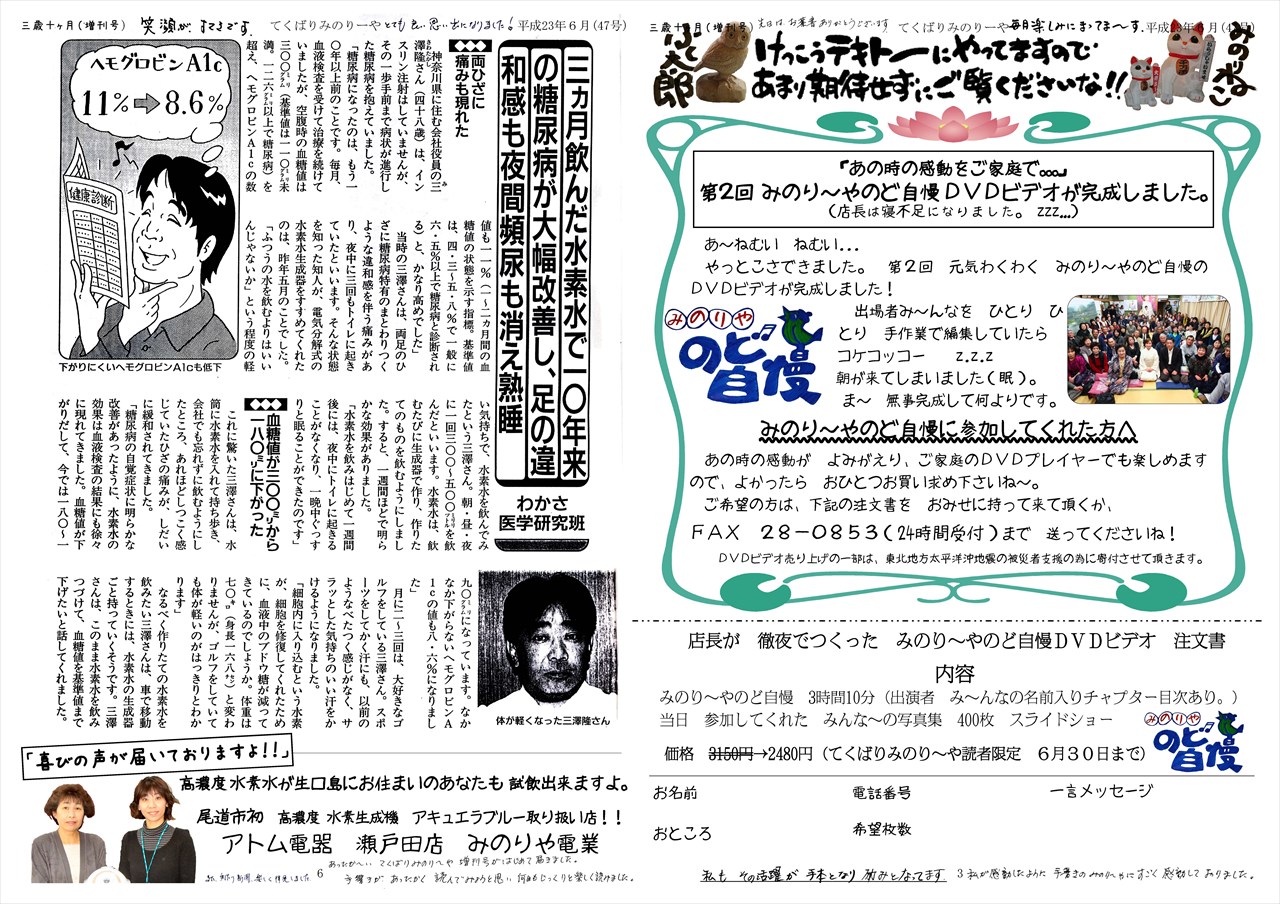 三歳十ヶ月(増刊号)
笑顔が すてきです。
てくばりみのりーや
とても良い思い出になりました!
平成23年6月(47号)
ヘモグロビンA1c
11%⇨8.6%
健康診断
下がりにくいヘモグロビンA1cも低下
三ヵ月飲んだ水素水で一〇年来
の糖尿病が大幅改善し、足の違
和感も夜間頻尿も消え熟睡
わかさ
医学研究班
両ひざに
痛みも現れた
神奈川県に住む会社役員の三
澤隆さん(四十八歳)は、イン
スリン注射はしていませんが、
その一歩手前まで病状が進行し
た糖尿病を抱えていました。
「糖尿病になったのは、もう一
〇年以上前のことです。毎月、
血液検査を受けて治療を続けて
いましたが、空腹時の血糖値は
三〇〇ミリグラム(基準値は一一〇ミリグラム未
満。一二六ミリグラム以上で糖尿病)を
超え、ヘモグロビンA1cの数
値も一一%(一~二ヵ月間の血
糖値の状態を示す指標。基準値
は、四・三~五・八%で一般に
六・五%以上で糖尿病と診断され
る)と、かなり高めでした」
当時の三澤さんは、両足のひ
ざに糖尿病特有のまとわりつく
ような違和感を伴う痛みがあ
り、夜中に三回もトイレに起き
ていたといいます。そんな状態
を知った知人が、電気分解式の
水素水生成器をすすめてくれた
のは、昨年五月のことでした。
「ふつうの水を飲むよりはいい
んじゃないか」という程度の軽
い気持ちで、水素水を飲んでみ
たという三澤さん。朝・昼・夜
に一回三〇〇~五〇〇ミリリットルを飲
んだといいます。水素水は、飲
むたびに生成器で作り、作りた
てのものを飲むようにしまし
た。すると、一週間ほどで明ら
かな効果がありました。
「水素水を飲みはじめて一週間
後には、夜中にトイレに起きる
ことがなくなり、一晩中ぐっす
りと眠ることができたのです」
血糖値が三〇〇ミリグラムから
一八〇ミリグラムに下がった
これに驚いた三澤さんは、水
筒に水素水を入れて持ち歩き、
会社でも忘れずに飲むようにし
たところ、あれほどしつこく感
じていたひざの痛みが、しだい
に緩和されてきました。
「糖尿病の自覚症状に明らかな
改善があったように、水素水の
効果は血液検査の結果にも徐々
に現れてきました。血糖値が下
がりだして、今では一八〇~一
九〇ミリグラムになっています。なか
なか下がらないヘモグロビンA
1cの値も八・六%になりまし
た」
月に二~三回は、大好きなゴ
ルフをしている三澤さん。スポ
ーツをしてかく汗にも、以前の
ようなべたつく感じがなく、サ
ラッとした気持ちのいい汗をか
けるようになりました。
「細胞内に入り込むという水素
が、細胞を修復してくれたため
に、血液中のブドウ糖が減って
きているのでしょうか。体重は
七〇キロ(身長一六八センチ)と変わ
りませんが、ゴルフをしていて
も体が軽いのがはっきりとわか
ります」
なるべく作りたての水素水を
飲みたい三澤さんは、車で移動
するときには、水素水の生成器
ごと持っていくそうです。三澤
さんは、このまま水素水を飲み
つづけて、血糖値を基準値まで
下げたいと話してくれました。
体が軽くなった三澤隆さん
「喜びの声が届いておりますよ!!」
高濃度水素水が生口島にお住まいのあなたも試飲出来ますよ。
尾道市初 高濃度 水素生成機 アキュエラブルー取り扱い店!!
アトム電器 瀬戸田店 みのりや電業
あったか~い てくばりみのり~や 増刊号がはじめて届きました。
6
手書きが あったかく 読んでみようと思い 何回もじっくりと楽しく続けました。
三歳十ヶ月(増刊号)
先日は お葉書ありがとうございます
てくばりみのりーや
毎月楽しみにまってま~す。
平成23年6月(47号)
ふく太郎
けっこうテキトーにやってますので
あまり期待せずにご覧くださいな!!
みのりねこ
『あの時の感動をご家庭で。。。』
第2回 みのり~やのど自慢DVDビデオが完成しました。
(店長は寝不足になりました。 zzz...)
あ~ねむい ねむい...
やっとこさできました。 第2回 元気わくわく みのり~やのど自慢の
DVDビデオが完成しました!
みのりや
のど自慢
出場者み~んなを ひとり ひ
とり 手作業で編集していたら
コケコッコー z.z.z
朝が来てしまいました(眠)。
ま~ 無事完成して何よりです。
みのり~やのど自慢に参加してくれた方へ
あの時の感動が よみがえり、ご家庭のDVDプレイヤーでも楽しめます
ので、よかったら おひとつお買い求め下さいね~。
ご希望の方は、下記の注文書を おみせに持って来て頂くか、
FAX 28-0853(24時間受付)まで 送ってくださいね!
DVDビデオ売り上げの一部は、東北地方太平洋沖地震の被災者支援の為に寄付させて頂きます。
店長が 徹夜でつくった みのり~やのど自慢DVDビデオ 注文書
内容
みのり~やのど自慢 3時間10分(出演者 み~んなの名前入りチャプター目次あり。)
当日 参加してくれた みんな~の写真集 400枚 スライドショー
みのりや
のど自慢
価格 3150円→2480円(てくばりみのり~や読者限定 6月30日まで)
お名前
電話番号
一言メッセージ
おところ
希望枚数
私も その活躍が 手本となり 励みとなってます
3
私が感動したように 手書きのみのり~やにすごく感動しておりました。